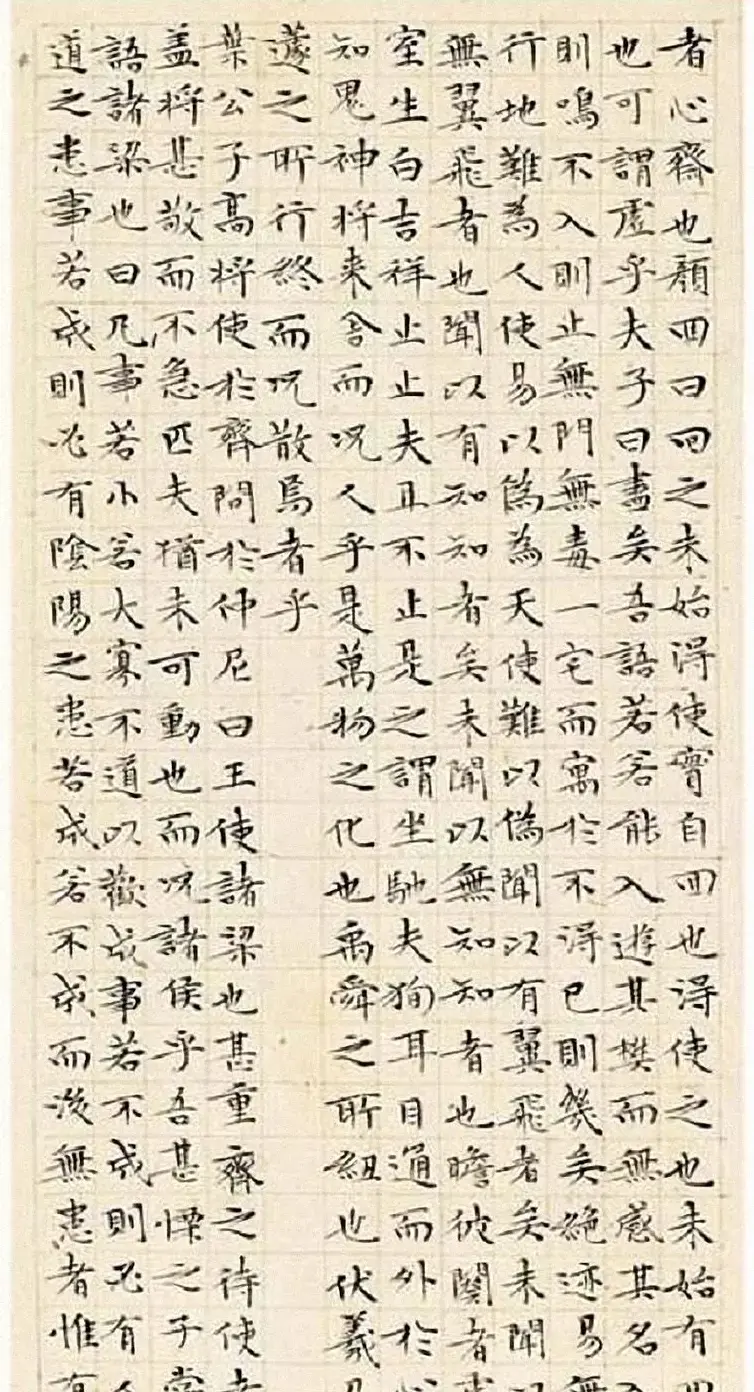 者心齋也顏回曰回之未始淂使實自回也淂使之也未始有
也可謂虛乎夫子曰盡矣吾語若若能入遊其樊而無感其名
則鳴不入則止無門無毒一宅而寓於不淂已則幾矣絕迹易
行地難為人使易以偽為天使難以偽聞以有翼飛者矣未聞
無翼飛者也聞以有知知者矣未聞以無知知者也瞻彼闋者
室生白吉祥止止夫且不止是之謂坐馳夫狥耳目通而外於
知鬼神將來舍而況人乎是萬物之化也禹舜之所紐也伏羲
蘧之所行終而況散焉者乎
葉公子高將使於齊問於仲尼曰王使諸梁也甚重齊之待使
盖將甚敬而不急匹夫猶未可動也而況諸侯乎吾甚慄之子
語諸梁也曰凡事若小若大寡不道以歡成事若不成則必有
道之患事若成則必有陰陽之患若成若不成而後無患者惟